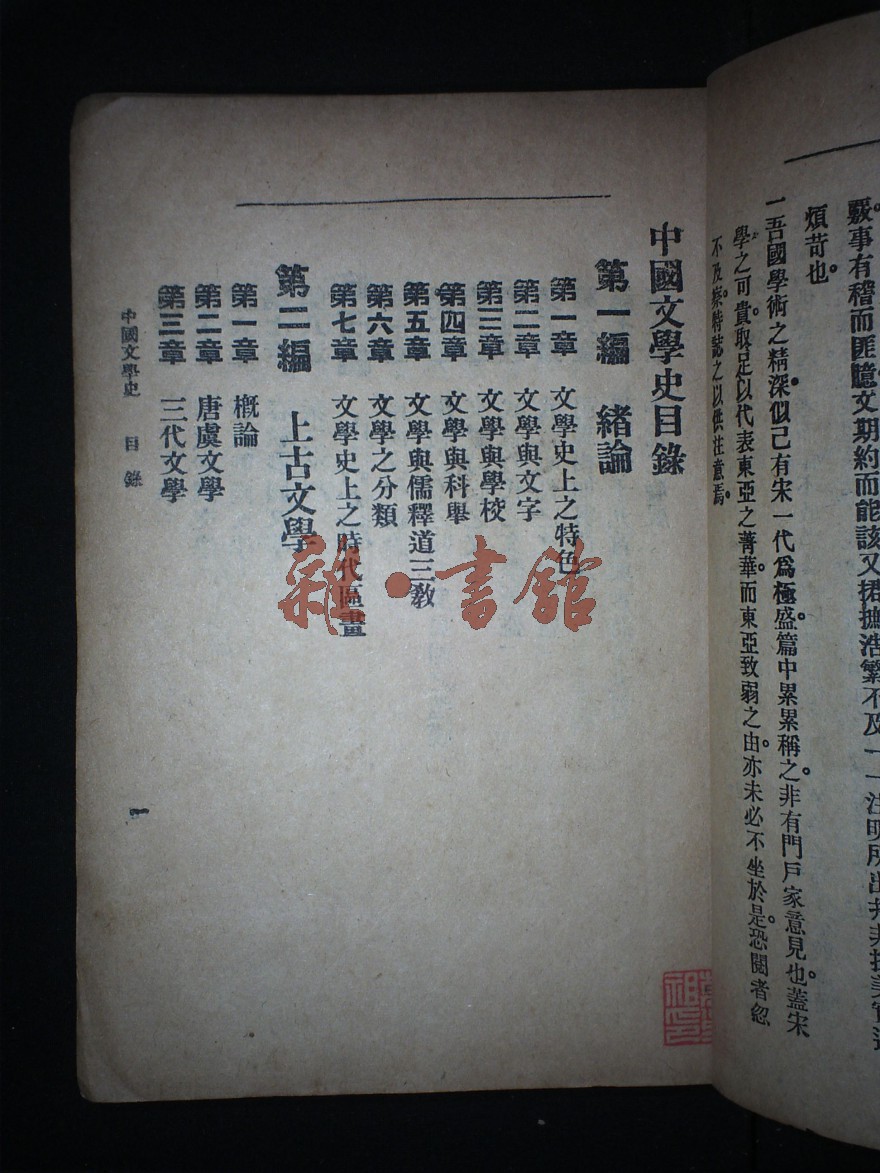 覈事有稽而匪臆文期約而能該又捃摭浩繁不及一一注明所出
煩苛也。
一吾國學術之精深。似已有宋一代爲極盛。篇中累累稱之。非有門戶家意見也。蓋宋
學之可貴。取足以代表東亞之菁華。而東亞致弱之由。亦未必不坐於是。恐閱者忽
不及察。特誌之以供注意焉。
中國文學史目錄
第一編 緒論
第一章 文學史上之特色
第二章 文學與文字
第三章 文學與學校
第四章 文學與科舉
第五章 文學與儒釋道三敎
第六章 文學之分類
第七章 文學史上之時代區畫
第二編 上古文學
第一章 槪論
第二章 唐虞文學
第三章 三代文學
中國文學史 目錄
一
雜·書館